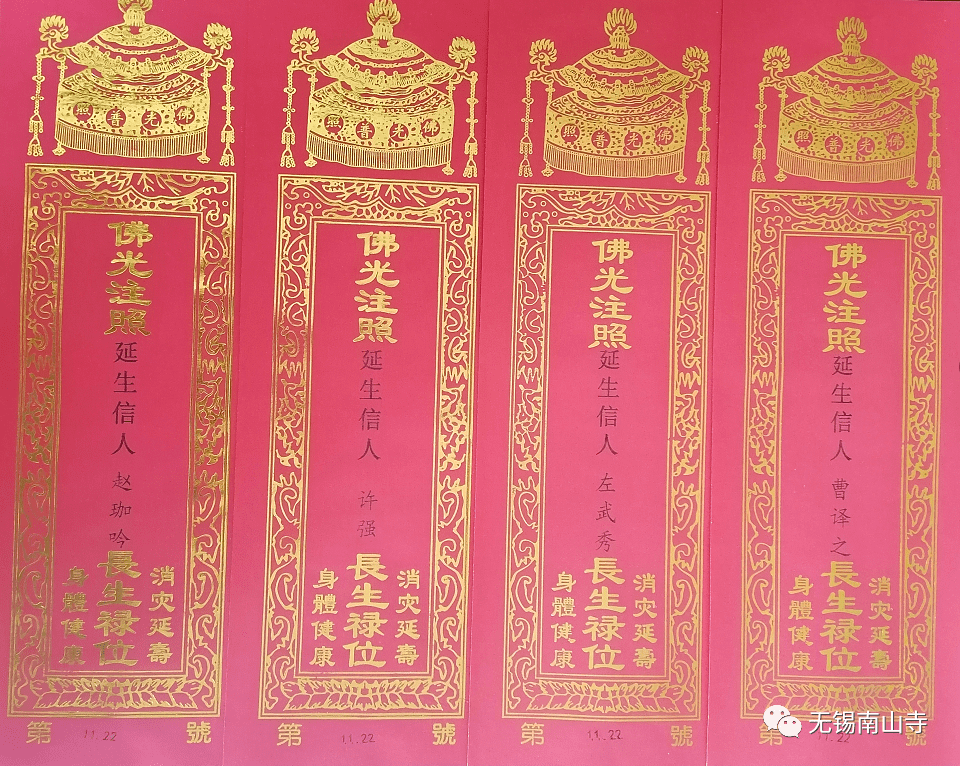 佛光普照
佛光注照
延生信人 赵珈吟
長生禄位
消灾延壽
身體健康
第 11.22 號
佛光普照
佛光注照
延生信人 许强
長生禄位
消灾延壽
身體健康
第 11.22 號
佛光普照
佛光注照
延生信人 左武秀
長生禄位
消灾延壽
身體健康
第 11.22 號
佛光普照
佛光注照
延生信人 曹译之
長生禄位
消灾延壽
身體健康
第 11.22 號
无锡南山寺